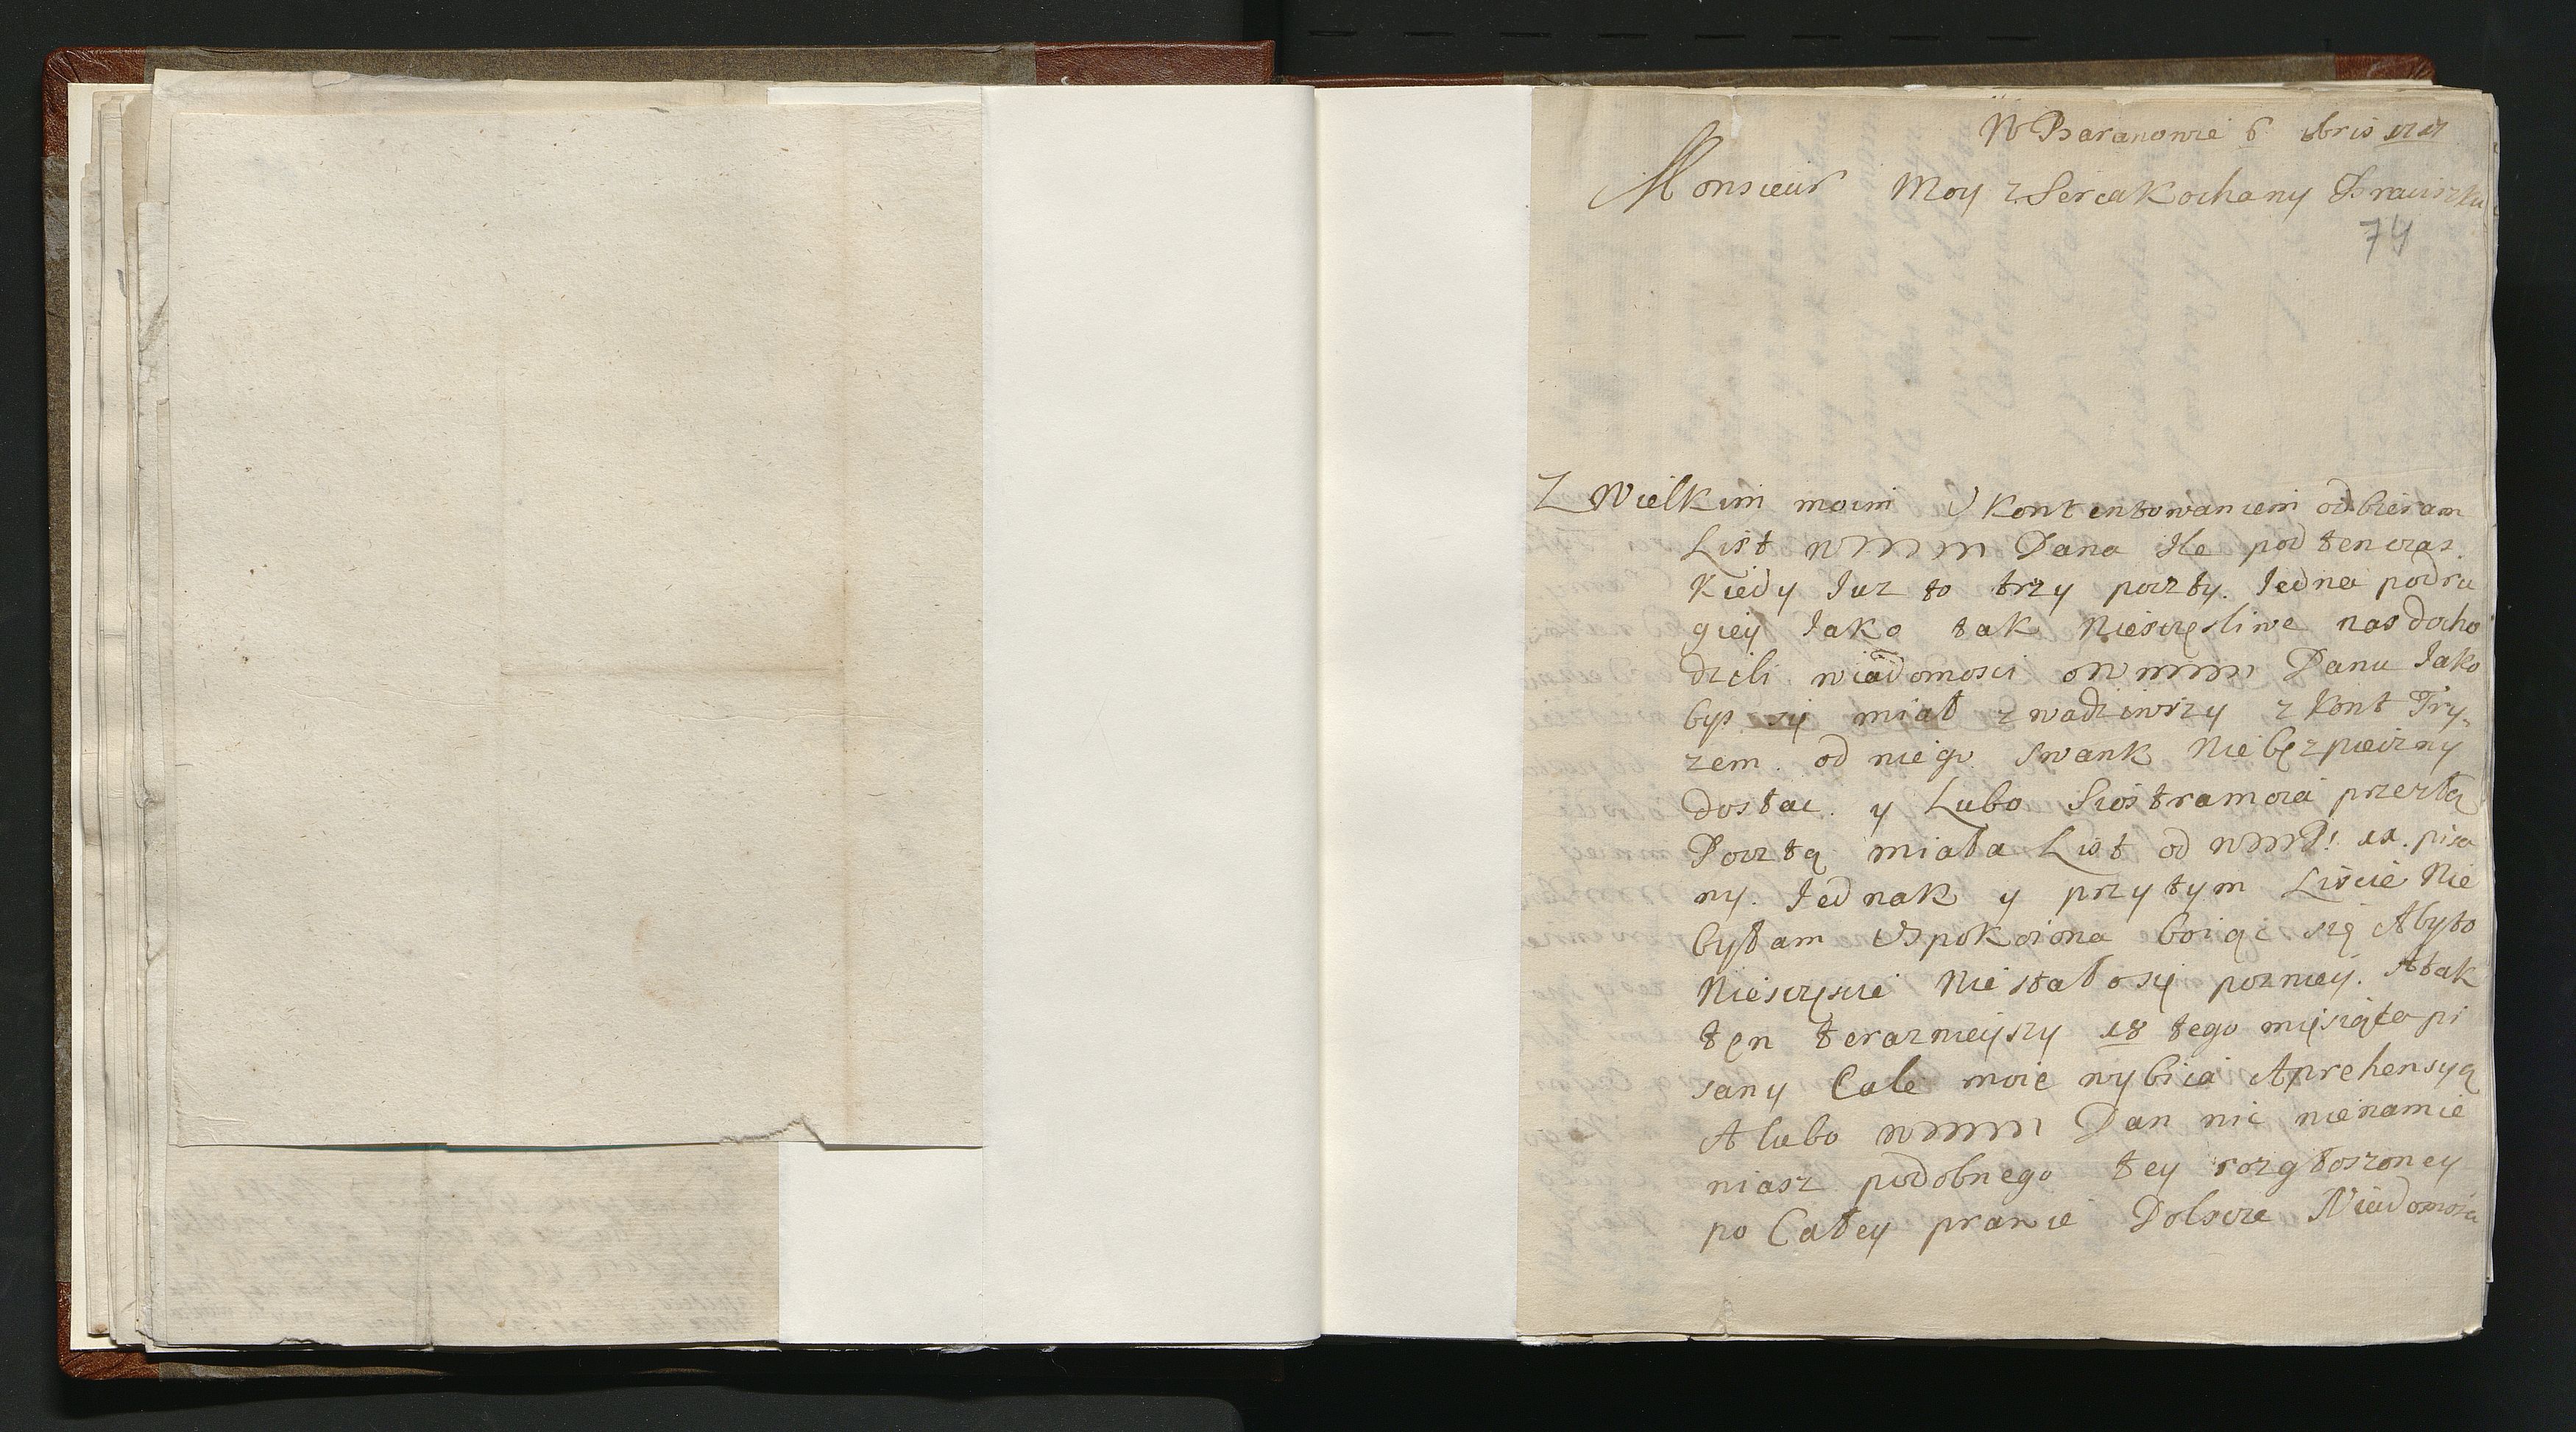 W Baranowie 6 bris 1717
Monsieur Moy z Serca Kochany Braciszku
74
Z Wielkim moim Ukontentowaniem odbieram
List WMM Pana Ile pod ten czas.
Kiedy Iuz to trzy poczty. Iedna podru
giey Iako tak Niesczęsliwe nas docho
dzieli wiadomosci o WMMM Panu Iako
bys się miał zwadziwszy z Kont Try,
zem. od niego Swank Niebęzpieczny
dostac. y Lubo Siostra moia przeztą
Pocztą miała List od WMMP: 11. pisa
ny. Iednak y przytym Liscie Nie
byłam Uspokoiona boiąc się Abyto
Niesczęscie Niestało się pozniey. Atak
tęn teraznieyszy 18 tego mięsiąca pi
sany Cale moie wybiia Aprehensyą
A lubo WMMM Pan nic nienamie
niasz podobnego tey rozgłoszoney
po Całey prawie Polscze Wiadomosci